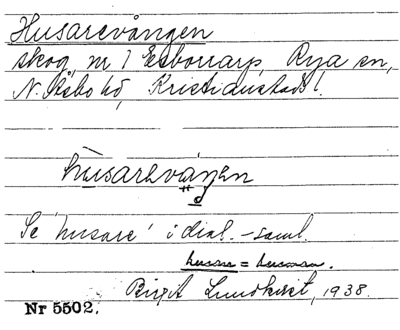 Husarevången
skog, nr 1 Esborrarp, Rya sn,
N. Åsbo hd, Kristianstads l.
husarevaŋen
Se 'husare' i dial.-saml.
husare = husman.
Birgit Lundkvist, 1938.
Nr 5502.